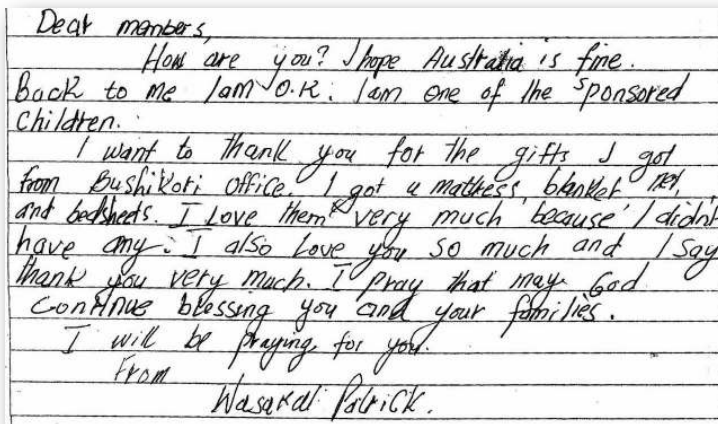 Dear members,
How are you? I hope Australia is fine.
Back to me I am O.K. I am one of the sponsored
children.
I want to thank you for the gifts I got
from Bushikori office. I got a mattress, blanket, net,
and bedsheets. I Love them very much because I didn't
have any. I also Love you so much and I say
thank you very much. I pray that may God
continue blessing you and your families.
I will be praying for you.
From
Patrick.